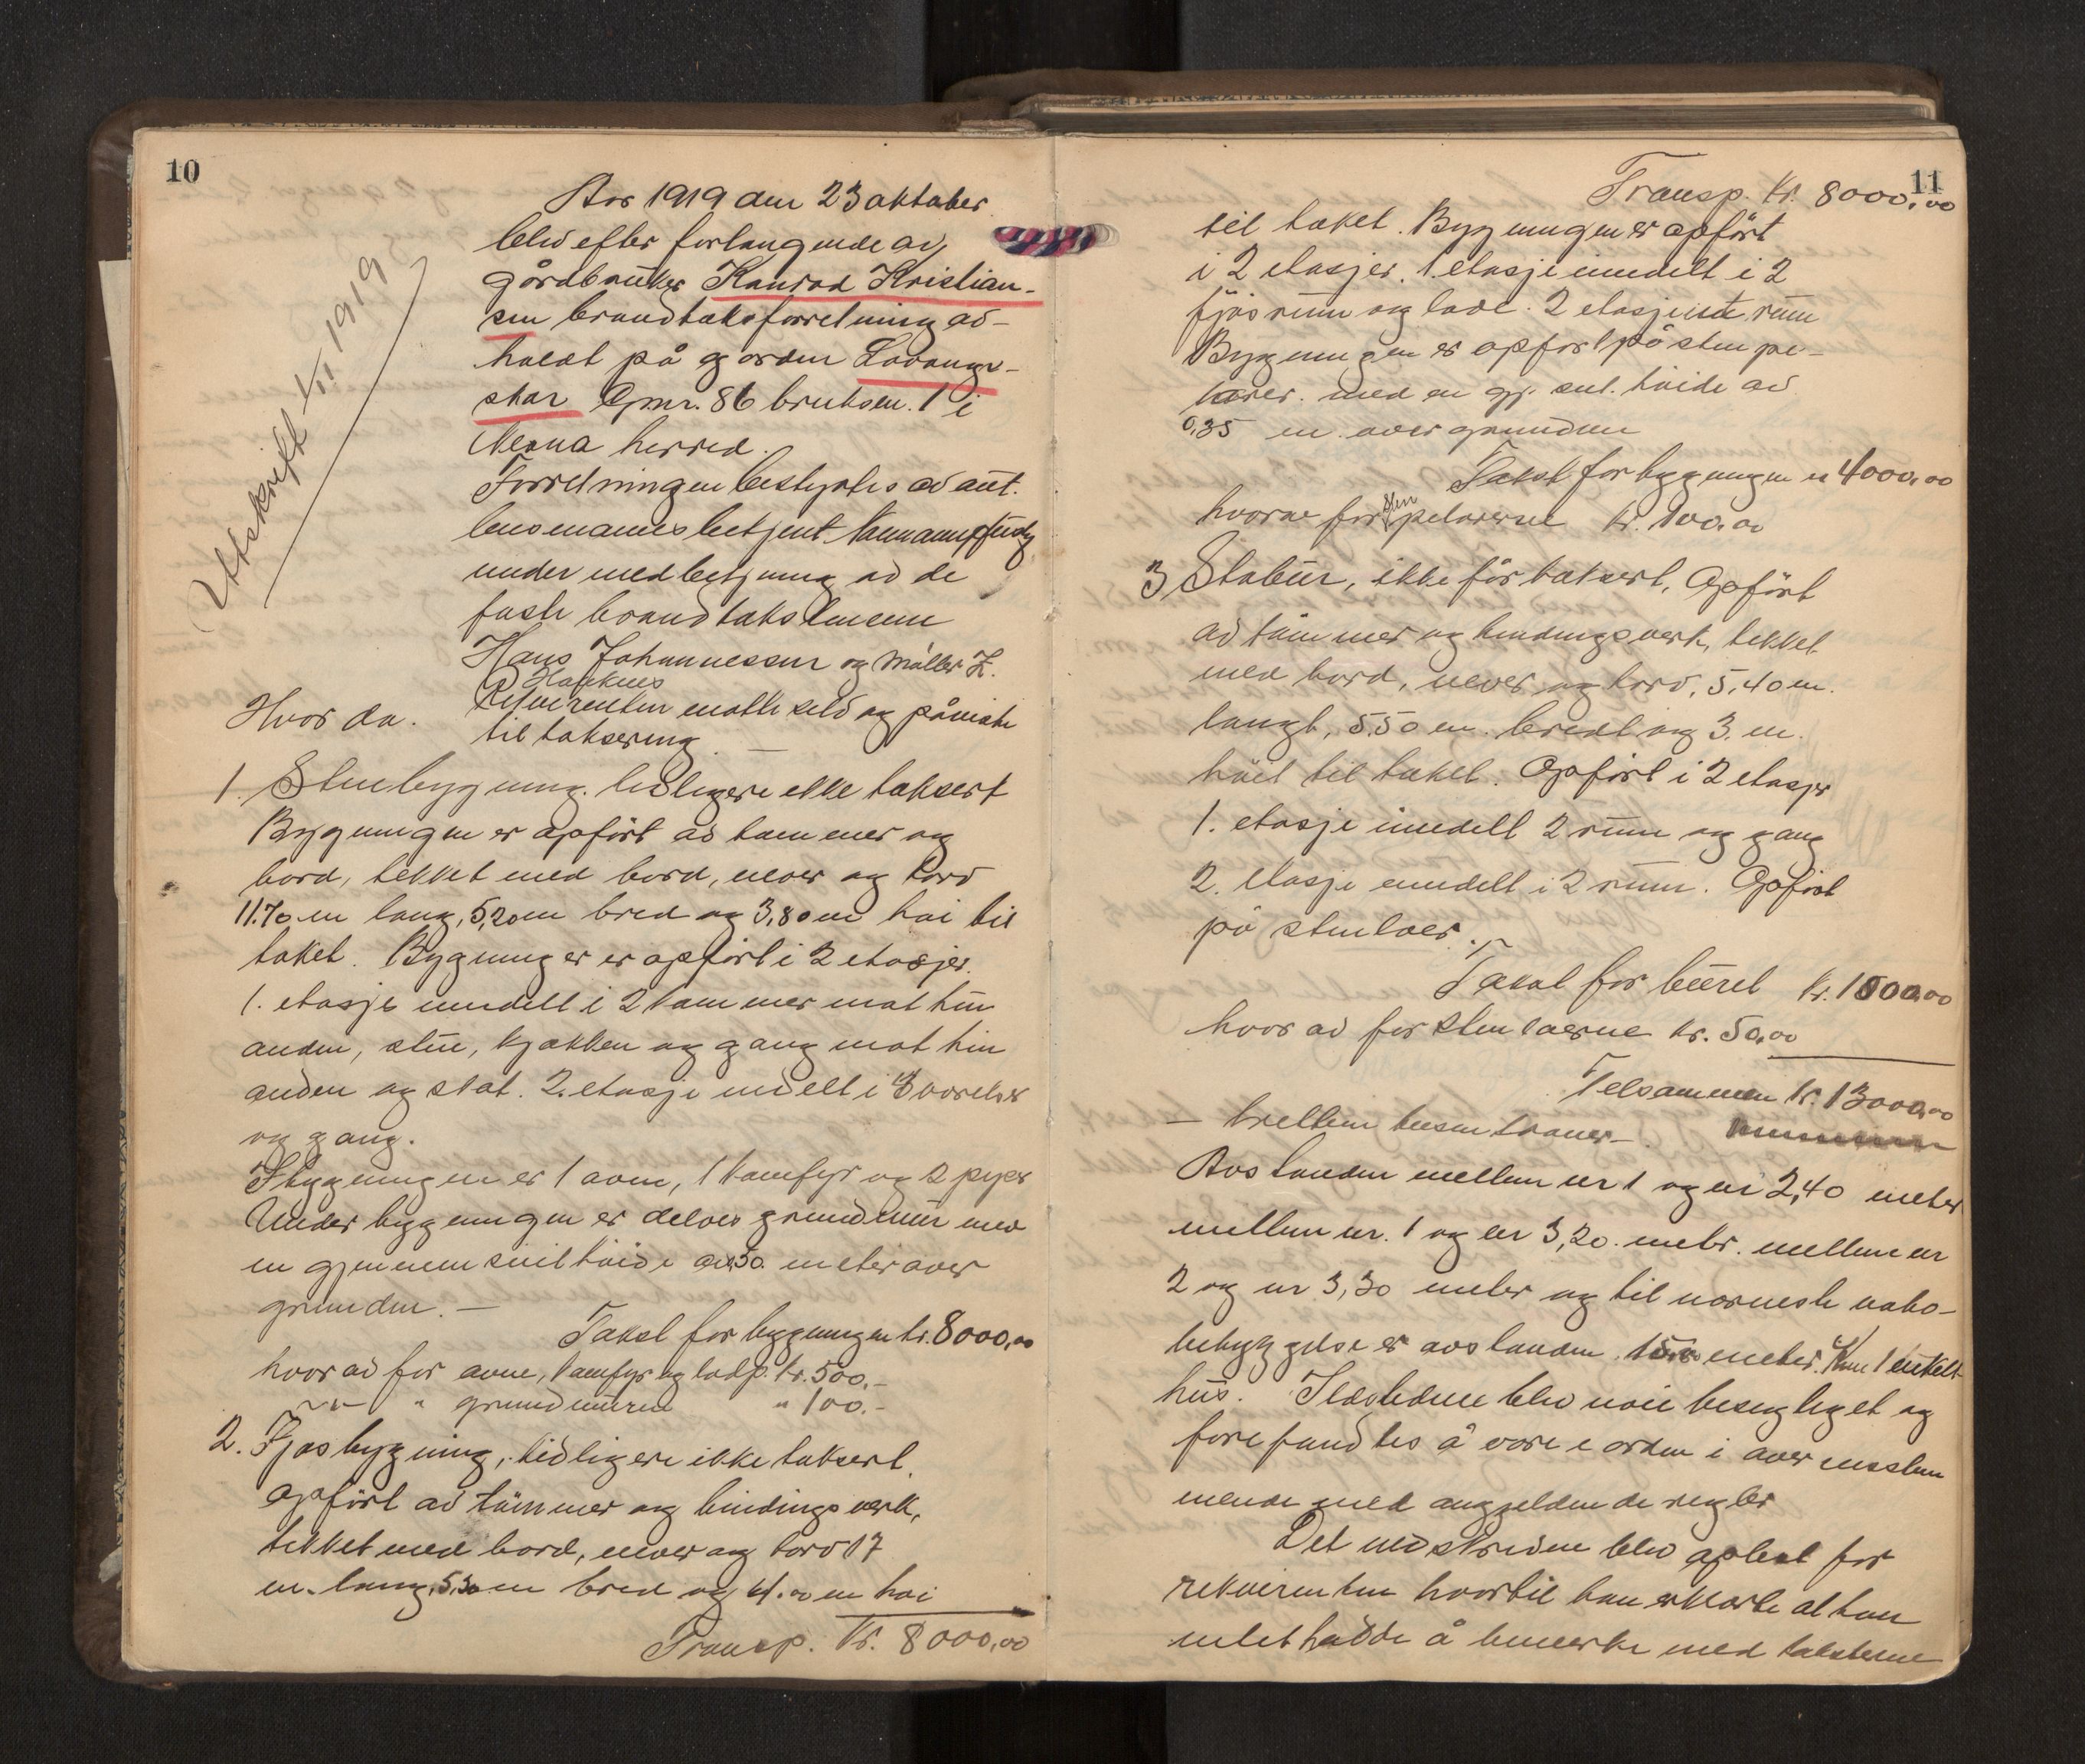 10
Utskrift 1/11 1919
Aar 1919 den 23 oktober
blev efter forlangende av
gårdbruker Konrad Kristian-
sen brandtaksforretning av-
holdt på gården Lavangs-
skar Gnr. 86 bruksn. 1 i
herred.
Forretningen bestyrtes av aut.
lensmannsbetjent
under medbetjening av de
faste brandtakstmenn
Hans Johannessen og Møller Z.
Hanknes
Hvor da. Rekvirenten møtte selv og påviste
til taksering. —
1. Stuebygning. tidligere ikke taksert
Bygningen er opført av tømmer og
bord, tekket med bord, never og torv
11.70 m lang, 5,20 m bred og 3,80 m høi til
taket. Bygninger er opført i 2 etasjer.
1. etasje inndelt i 2 kammer mot hin
anden, stue, kjøkken og gang mot hin
anden og skot. 2. etasje indelt i 3 værelser
og gang.
I bygningen er 1 ovn, 1 komfyr og 2 piper
Under bygningen er delvis grundmur med
en gjennemsnitshøide av 0,50 meter over
grunden. —
Takst for bygningen kr. 8000,00
hvorav for ovne, komfyr og kr. 500.-
" grundmuren " 100.-
2. Fjøsbygning, tidligere ikke taksert.
opført av tømmer og bindingsverk,
tekket med bord, never og torv 17
m. lang, 5,30 m bred og 4.00 m høi
Transp. Kr. 8000,00
11
Transp. Kr. 8000,00
til taket. Bygningen er opført
i 2 etasjer. 1. etasje inndelt i 2
fjøsrum og lade. 2 etasje rum
Bygningen er opført på sten pe-
larer. med en gj. snt. høide av
0,35 m. over grunden
Takst for bygningen kr 4000,00
hvorav for sten pelarerne kr. 100,00
3 Stabur, ikke før taksert. Opført
av tømmer og bindingsverk, tekket
med bord, never og torv, 5,40 m.
langt, 5.50 m. bredt og 3. m.
høit til taket. Opført i 2 etasjer
1. etasje inndelt 2 rum og gang
2. etasje inndelt i 2 rum. Opført
på stenlaer.
Takst for buret kr. 1000,00
hvor av for stenlaerne kr. 50,00
Tilsammen kr. 13000,00
— tretten tusen kroner —.
Avstanden mellem nr 1 og nr 2, 40 meter
mellem nr. 1 og nr 3, 20. metr. mellem nr
2 og nr 3, 30 meter og til nærmeste nabo-
bebyggelse er avstanden meter. Kun 1 enkelt
hus. Ildstedene blev nøie besigtiget og
forefandtes å være i orden i overensstem
mende med angjeldende regler
Det nedskrevne blev oplest for
rekvirenten hvortil han erklærte at han
intet hadde å bemerke med taksterne